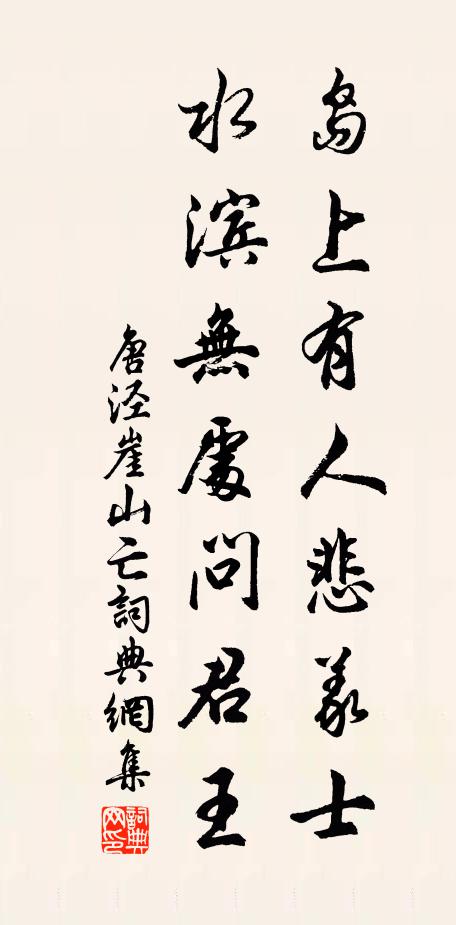 島上有人悲義士
水濱無處問君王
唐泾崖山亡詞典網集
詞典網印